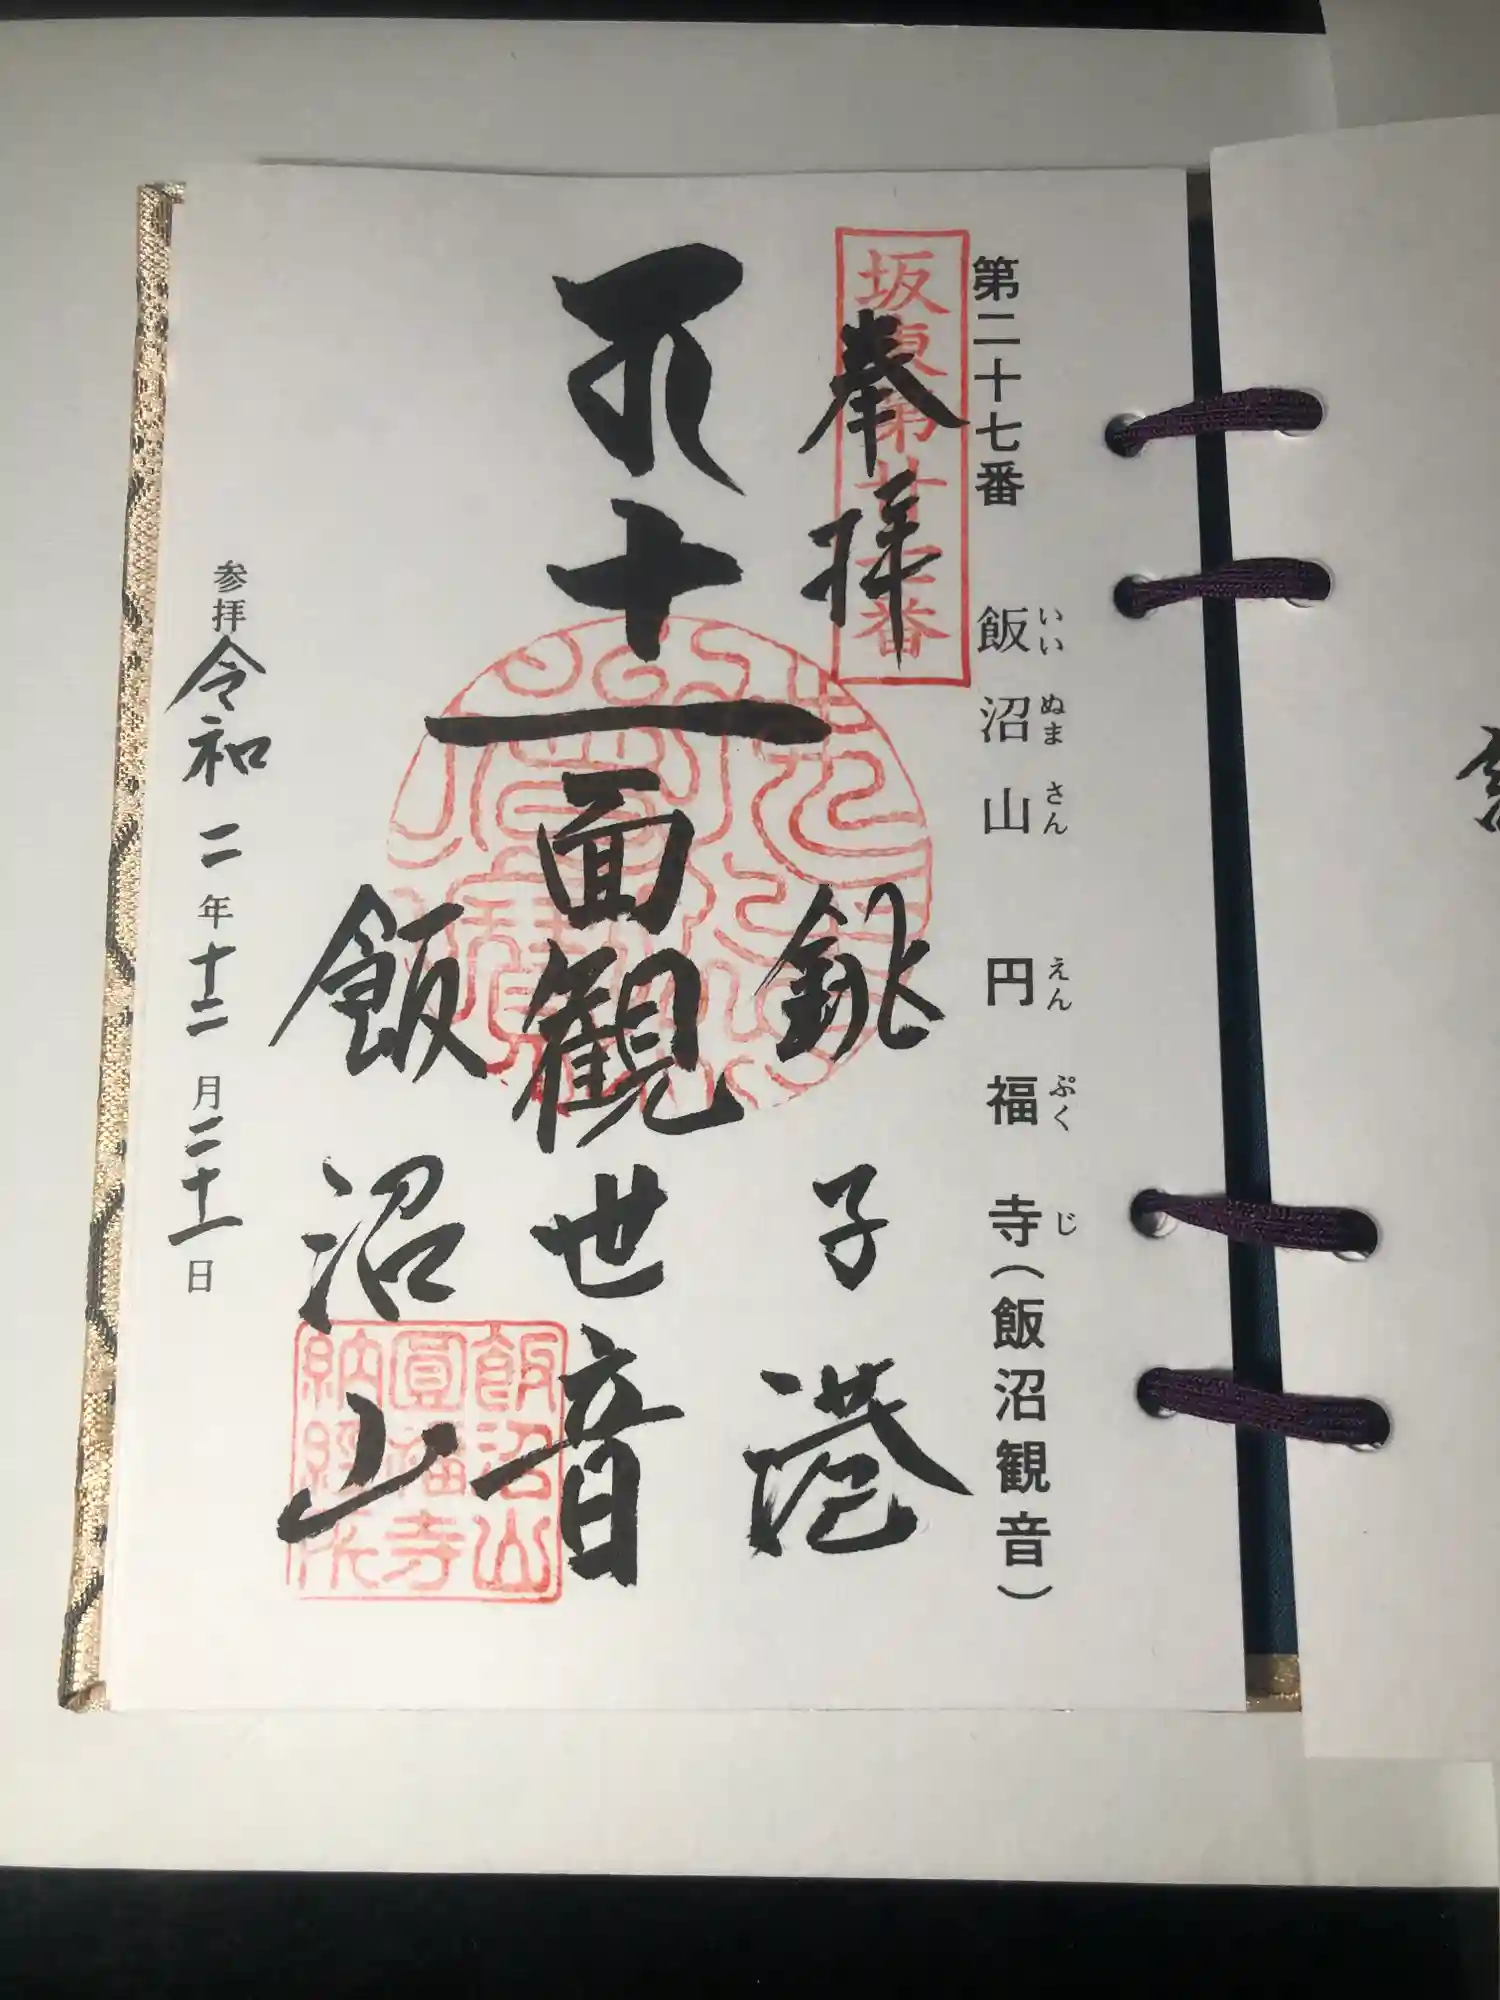 第二十七番 飯沼山 円福寺（飯沼観音）
いいぬまさん えんぷくじ
坂東第廿七番
奉拝
銚子港
十一面観世音
飯沼山
飯沼山
圓福寺
納経所
参拝令和二年十二月二十一日